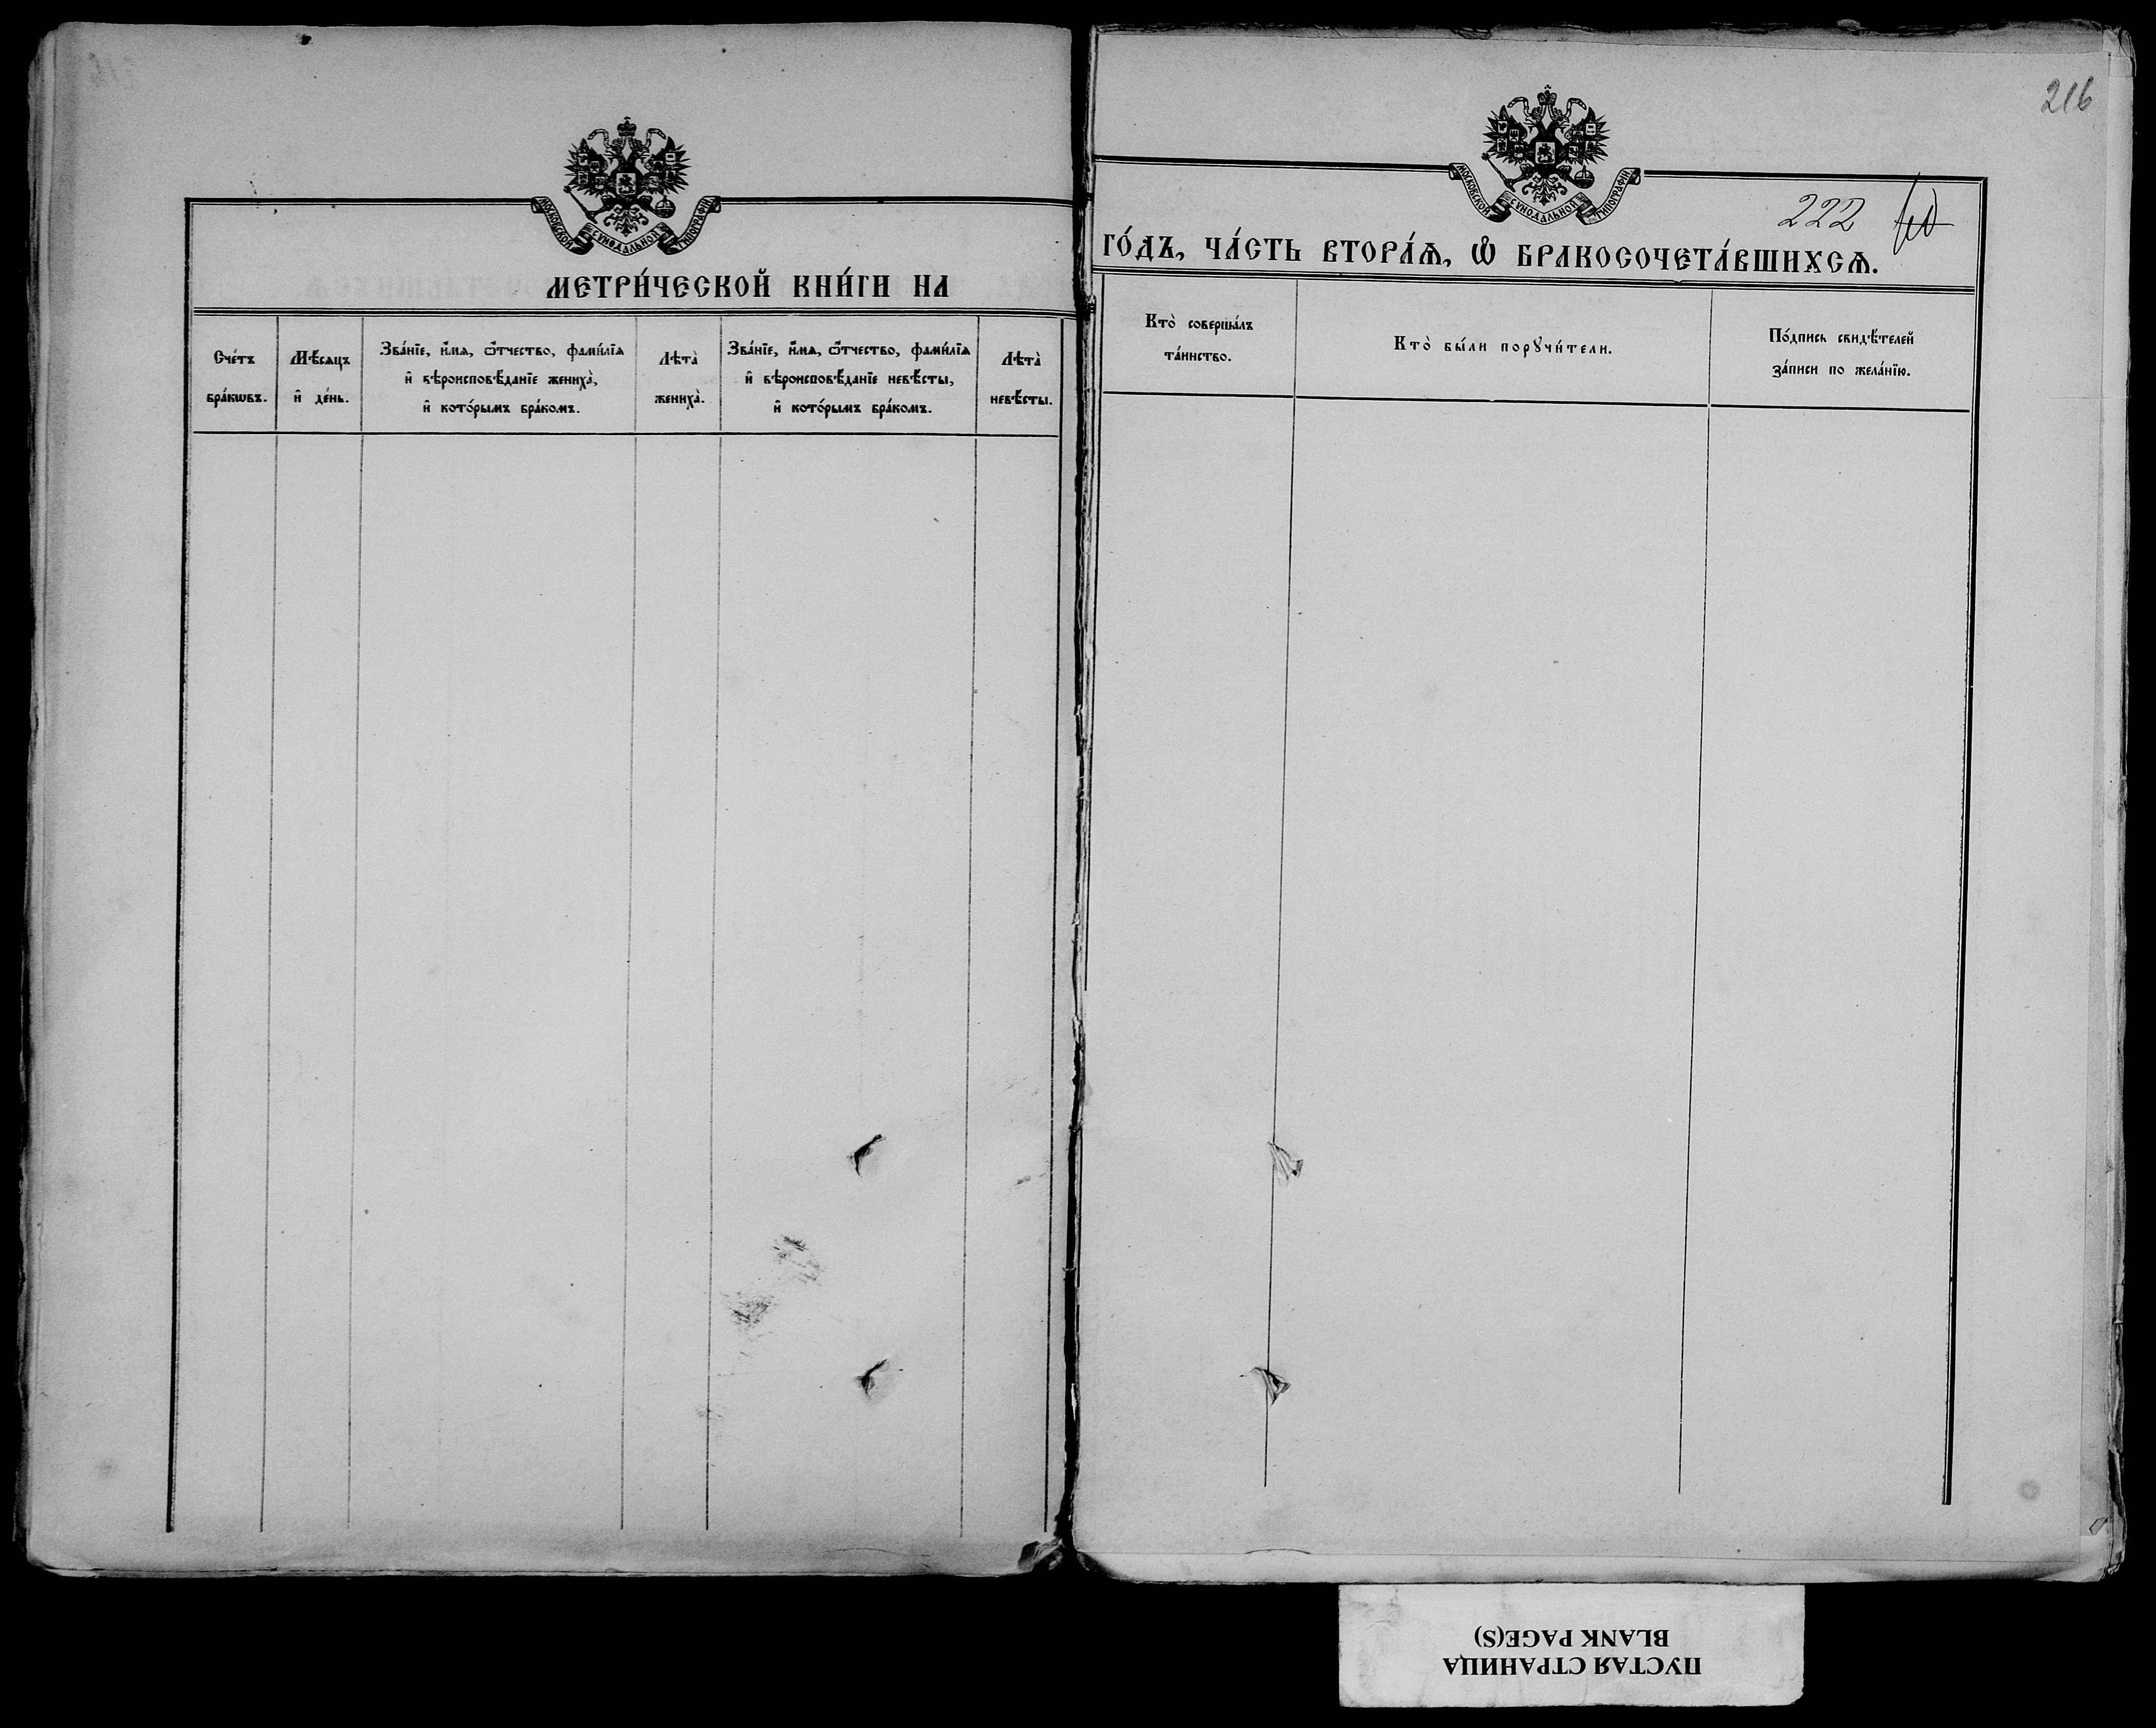 216
МОСКОВСКОЙ СУНОДАЛЬНОЙ ТИПОГРАФІИ
МЕТРИ́ЧЕСКОЙ КНИ́ГИ НА
Сче́тъ
бра́кѡвъ.
Мѣ́сяцъ
и҆ де́нь.
Зва́нїе, и҆́мѧ, ѻ҆́тчество, фами́лїѧ
и҆ вѣроисповѣ́данїе жениха̀,
и҆ кото́рымъ бра́комъ.
Лѣта̀
жениха̀.
Зва́нїе, и҆́мѧ, ѻ҆́тчество, фами́лїѧ
и҆ вѣроисповѣ́данїе невѣ́сты,
и҆ кото́рымъ бра́комъ.
Лѣта̀
невѣ́сты.
МОСКОВСКОЙ СУНОДАЛЬНОЙ ТИПОГРАФІИ
222
ГО́ДЪ, ЧА́СТЬ ВТОРА́Ѧ, Ѽ БРАКОСОЧЕТА́ВШИХСѦ.
Кто̀ соверша́лъ
та́инство.
Кто̀ бы́ли порꙋчи́тели.
По́дпись свидѣ́телей
за́писи по жела́нїю.
ПУСТАЯ СТРАНИЦА
BLANK PAGE(S)